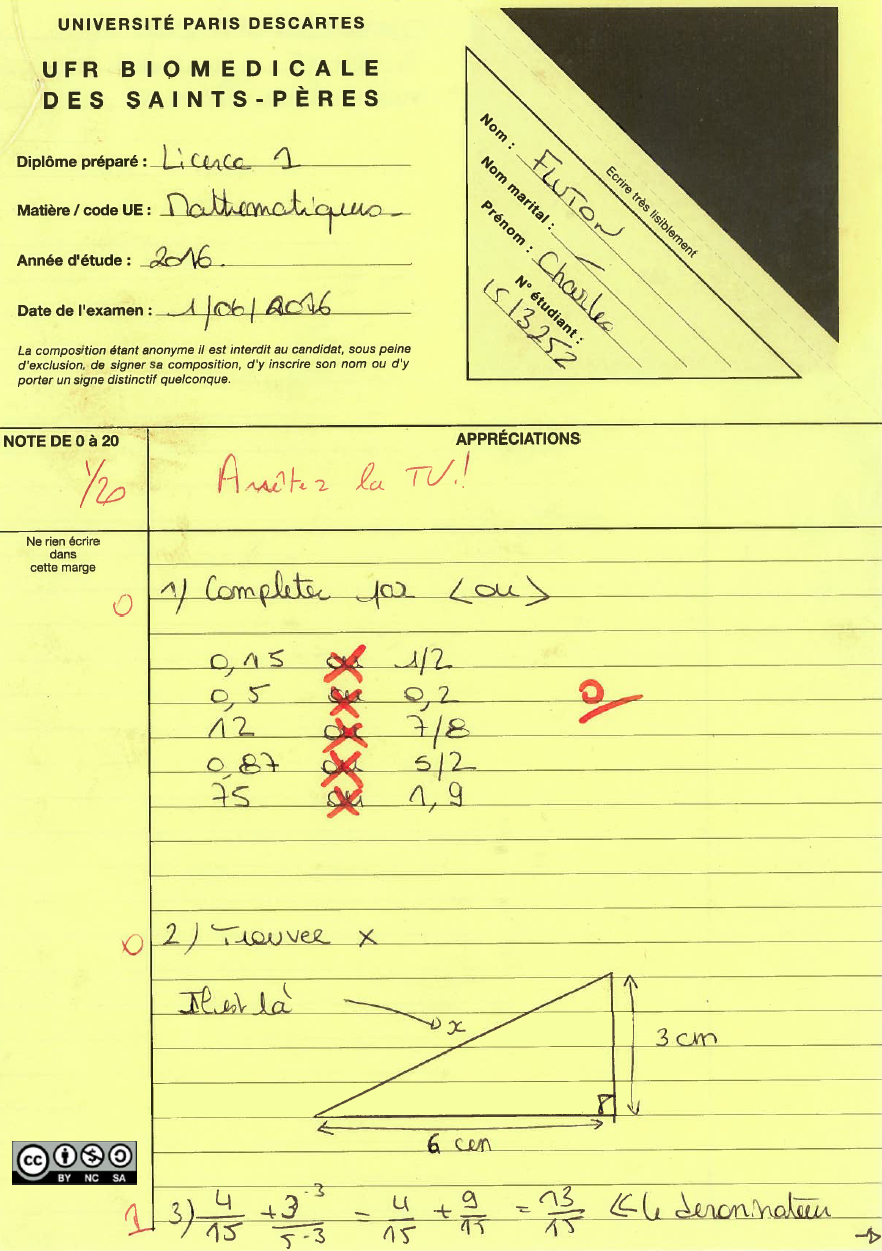 UNIVERSITÉ PARIS DESCARTES
UFR BIOMEDICALE
DES SAINTS-PÈRES
Diplôme préparé : Licence 1
Matière / code UE : Mathematiques
Année d'étude : 2016.
Date de l'examen : 1/06/2016
La composition étant anonyme il est interdit au candidat, sous peine
d'exclusion, de signer sa composition, d'y inscrire son nom ou d'y
porter un signe distinctif quelconque.
Ecrire très lisiblement
Nom : FLUTON
Nom marital : –
Prénom : Charles
N° étudiant :
1513252
NOTE DE 0 à 20
APPRÉCIATIONS
1/20
Arrêtez la TV.!
Ne rien écrire
dans
cette marge
0
1) Completer par < ou >
0,15 ou 1/2
0,5 ou 0,2
0
12 ou 7/8
0,87 ou 5/2
75 ou 1,9
0
2) Trouver x
Il est là
x
3 cm
6 cm
1
3) 4/15 + 3·3/5·3 = 4/15 + 9/15 = 13/15 <= le denominateur
cc BY NC SA